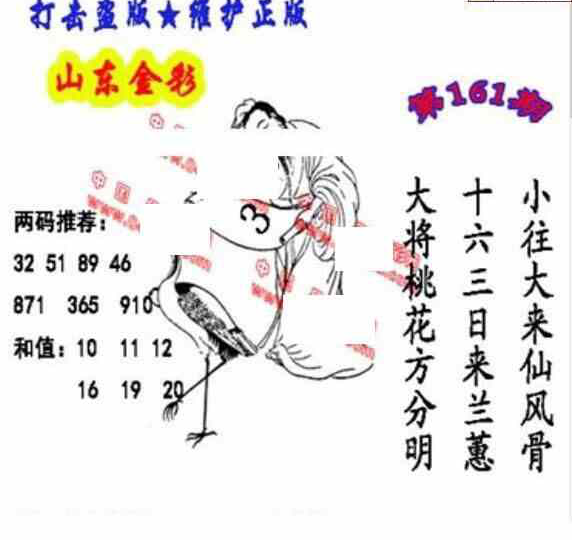 打击盗版★维护正版
山东金彩
第161期
小往大来仙风骨
十六三日来兰蕙
大将桃花方分明
3
两码推荐:
32 51 89 46
871 365 910
和值:10 11 12
16 19 20